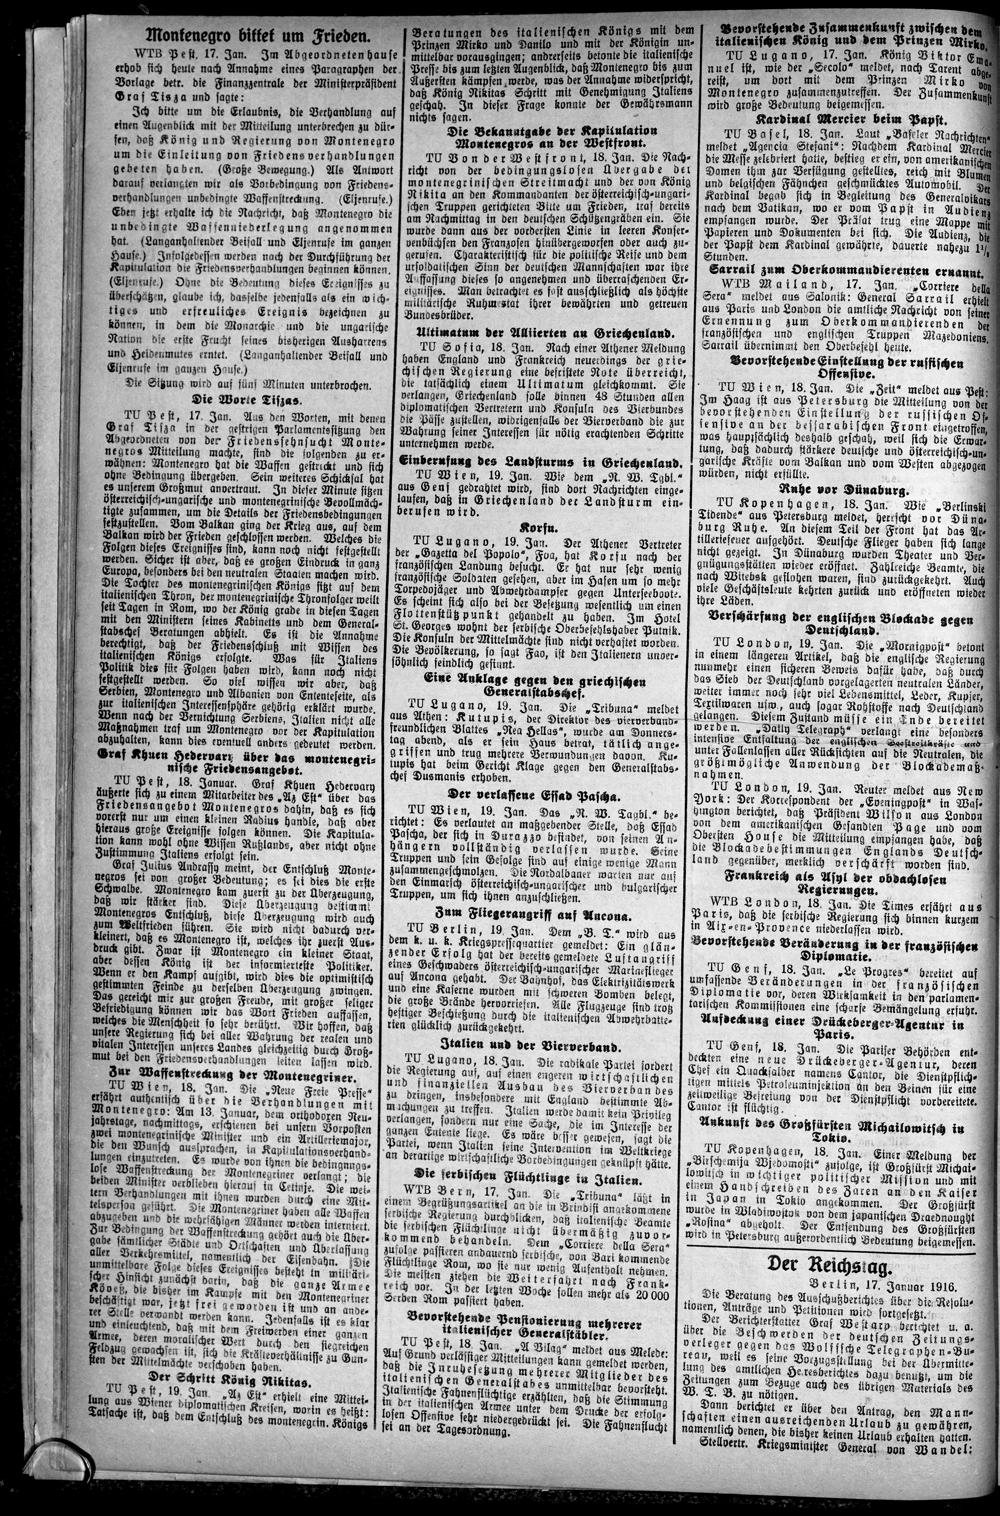 Montenegro bittet um Frieden.
WTB Pest, 17. Jan. Im Abgeordnetenhause
erhob sich heute nach Annahme eines Paragraphen der
Vorlage betr. die Finanzzentrale der Ministerpräsident
Graf Tisza und sagte:
Ich bitte um die Erlaubnis, die Verhandlung auf
einen Augenblick mit der Mitteilung unterbrechen zu dür-
fen, daß König und Regierung von Montenegro
um die Einleitung von Friedensverhandlungen
gebeten haben. (Große Bewegung.) Als Antwort
darauf verlangten wir als Vorbedingung von Friedens-
verhandlungen unbedingte Waffenstreckung. (Eljenrufe.)
Eben jetzt erhalte ich die Nachricht, daß Montenegro die
unbedingte Waffenniederlegung angenommen
hat. (Langanhaltender Beifall und Eljenrufe im ganzen
Hause.) Infolgedessen werden nach der Durchführung der
Kapitulation die Friedensverhandlungen beginnen können.
(Eljenrufe.) Ohne die Bedeutung dieses Ereignisses zu
überschätzen, glaube ich, dasselbe jedenfalls als ein wich-
tiges und erfreuliches Ereignis bezeichnen zu
können, in dem die Monarchie und die ungarische
Nation die erste Frucht seines bisherigen Ausharrens
und Heldenmutes erntet. (Langanhaltender Beifall und
Eljenrufe im ganzen Hause.)
Die Sitzung wird auf fünf Minuten unterbrochen.
Die Worte Tiszas.
TU Pest, 17. Jan. Aus den Worten, mit denen
Graf Tisza in der gestrigen Parlamentssitzung den
Abgeordneten von der Friedenssehnsucht Monte-
negros Mitteilung machte, sind die folgenden zu er-
wähnen: Montenegro hat die Waffen gestreckt und sich
ohne Bedingung übergeben. Sein weiteres Schicksal hat
es unserem Großmut anvertraut. In dieser Minute sitzen
österreichisch-ungarische und montenegrinische Bevollmäch-
tigte zusammen, um die Details der Friedensbedingungen
festzustellen. Vom Balkan ging der Krieg aus, auf dem
Balkan wird der Frieden geschlossen werden. Welches die
Folgen dieses Ereignisses sind, kann noch nicht festgestellt
werden. Sicher ist aber, daß es großen Eindruck in ganz
Europa, besonders bei den neutralen Staaten machen wird.
Die Tochter des montenegrinischen Königs sitzt auf dem
italienischen Thron, der montenegrinische Thronfolger weilt
seit Tagen in Rom, wo der König grade in diesen Tagen
mit den Ministern seines Kabinetts und dem General-
stabschef Beratungen abhielt. Es ist die Annahme
berechtigt, daß der Friedensschluß mit Wissen des
italienischen Königs erfolgte. Was für Italiens
Politik dies für Folgen haben wird, kann noch nicht
festgestellt werden. So viel wissen wir aber, daß
Serbien, Montenegro und Albanien von Ententeseite, als
zur italienischen Interessensphäre gehörig erklärt wurde.
Wenn nach der Vernichtung Serbiens, Italien nicht alle
Maßnahmen traf um Montenegro vor der Kapitulation
abzuhalten, kann dies eventuell anders gedeutet werden.
Graf Khuen Hedervary über das montenegri-
nische Friedensangebot.
TU Pest, 18. Januar. Graf Khuen Hedervary
äußerte sich zu einem Mitarbeiter des „Az Est“ über das
Friedensangebot Montenegros dahin, daß es sich
vorerst nur um einen kleinen Radius handle, daß aber
hieraus große Ereignisse folgen können. Die Kapitula-
tion kann wohl ohne Wissen Rußlands, aber nicht ohne
Zustimmung Italiens erfolgt sein.
Graf Julius Andrassy meint, der Entschluß Monte-
negros sei von großer Bedeutung; es sei dies die erste
Schwalbe. Montenegro kam zuerst zu der Überzeugung,
daß wir stärker sind. Diese Überzeugung bestimmt
Montenegros Entschluß, diese Überzeugung wird auch
zum Weltfrieden führen. Sie wird nicht dadurch ver-
kleinert, daß es Montenegro ist, welches ihr zuerst Aus-
druck gibt. Zwar ist Montenegro ein kleiner Staat,
aber dessen König ist der informierteste Politiker.
Wenn er den Kampf aufgibt, wird dies die optimistisch
gestimmten Feinde zu derselben Überzeugung zwingen.
Das gereicht mir zur großen Freude, mit großer seliger
Befriedigung können wir das Wort Frieden auffassen,
welches die Menschheit so sehr berührt. Wir hoffen, daß
unsere Regierung sich bei aller Wahrung der realen und
vitalen Interessen unseres Landes gleichzeitig durch Groß-
mut bei den Friedensverhandlungen leiten lassen wird.
Zur Waffenstreckung der Montenegriner.
TU Wien, 18. Jan. Die „Neue Freie Presse“
erfährt authentisch über die Verhandlungen mit
Montenegro: Am 13. Januar, dem orthodoxen Neu-
jahrstage, nachmittags, erschienen bei unsern Vorposten
zwei montenegrinische Minister und ein Artilleriemajor,
die den Wunsch aussprachen, in Kapitulationsverhand-
lungen einzutreten. Es wurde von ihnen die bedingungs-
lose Waffenstreckung der Montenegriner verlangt; die
beiden Minister verblieben hierauf in Cetinje. Die wei-
tern Verhandlungen mit ihnen wurden durch eine Mit-
telsperson geführt. Die Montenegriner haben alle Waffen
abzugeben und die wehrfähigen Männer werden interniert.
Zur Bedingung der Waffenstreckung gehört auch die Über-
gabe sämtlicher Städte und Ortschaften und Überlassung
aller Verkehrsmittel, namentlich der Eisenbahn. Die
unmittelbare Folge dieses Ereignisses besteht in militäri-
scher Hinsicht zunächst darin, daß die ganze Armee
Köveß, die bisher im Kampfe mit den Montenegriner
beschäftigt war, jetzt frei geworden ist und an ande-
rer Stelle verwandt werden kann. Jedenfalls ist es klar
und einleuchtend, daß mit dem Freiwerden einer ganzen
Armee, deren moralischer Wert durch den siegreichen
Feldzug gewachsen ist, sich die Kräfteverhältnisse zu Gun-
sten der Mittelmächte verschoben haben.
Der Schritt König Nikitas.
TU Pest, 19. Jan. „Az Est“ erhielt eine Mittei-
lung aus Wiener diplomatischen Kreisen, worin es heißt:
Tatsache ist, daß dem Entschluß des montenegrin. Königs
Beratungen des italienischen Königs mit dem
Prinzen Mirko und Danilo und mit der Königin un-
mittelbar vorausgingen; andrerseits betonte die italienische
Presse bis zum letzten Augenblick, daß Montenegro bis zum
Äußersten kämpfen werde, was der Annahme widerspricht,
daß König Nikitas Schritt mit Genehmigung Italiens
geschah. In dieser Frage konnte der Gewährsmann
nichts sagen.
Die Bekanntgabe der Kapitulation
Montenegros an der Westfront.
TU Von der Westfront, 18. Jan. Die Nach-
richt von der bedingungslosen Übergabe der
montenegrinischen Streitmacht und der von König
Nikita an den Kommandanten der österreichisch-ungari-
schen Truppen gerichteten Bitte um Frieden, traf bereits
am Nachmittag in den deutschen Schützengräben ein. Sie
wurde dann aus der vordersten Linie in leeren Konser-
venbüchsen den Franzosen hinübergeworfen oder auch zu-
gerufen. Charakteristisch für die politische Reife und dem
ursoldatischen Sinn der deutschen Mannschaften war ihre
Auffassung dieses so angenehmen und überraschenden Er-
eignisses. Man betrachtet es fast ausschließlich als höchste
militärische Ruhmestat ihrer bewährten und getreuen
Bundesbrüder.
Ultimatum der Alliierten an Griechenland.
TU Sofia, 18. Jan. Nach einer Athener Meldung
haben England und Frankreich neuerdings der grie-
chischen Regierung eine befristete Note überreicht,
die tatsächlich einem Ultimatum gleichkommt. Sie
verlangen, Griechenland solle binnen 48 Stunden allen
diplomatischen Vertretern und Konsuln des Vierbundes
die Pässe zustellen, widrigenfalls der Vierverband die zur
Wahrung seiner Interessen für nötig erachtenden Schritte
unternehmen werde.
Einberufung des Landsturms in Griechenland.
TU Wien, 19. Jan. Wie dem „N. W. Tgbl.“
aus Genf gedrahtet wird, sind dort Nachrichten einge-
laufen, daß in Griechenland der Landsturm ein-
berufen wird.
Korfu.
TU Lugano, 19. Jan. Der Athener Vertreter
der „Gazetta del Popolo“, Foa, hat Korfu nach der
französischen Landung besucht. Er hat nur sehr wenig
französische Soldaten gesehen, aber im Hafen um so mehr
Torpedojäger und Abwehrdampfer gegen Unterseeboote.
Es scheint sich also bei der Besetzung wesentlich um einen
Flottenstützpunkt gehandelt zu haben. Im Hotel
St. Georges wohnt der serbische Oberbefehlshaber Putnik.
Die Konsuln der Mittelmächte sind nicht verhaftet worden.
Die Bevölkerung, so sagt Fao, ist den Italienern unver-
söhnlich feindlich gesinnt.
Eine Anklage gegen den griechischen
Generalstabschef.
TU Lugano, 19. Jan. Die „Tribuna“ meldet
aus Athen: Kutupis, der Direktor des vierverband-
freundlichen Blattes „Nea Hellas“, wurde am Donners-
tag abend, als er sein Haus betrat, tätlich ange-
griffen und trug mehrere Verwundungen davon. Ku-
tupis hat beim Gericht Klage gegen den Generalstabs-
chef Dusmanis erhoben.
Der verlassene Essad Pascha.
TU Wien, 19. Jan. Das „N. W. Tagbl.“ be-
richtet: Es verlautet an maßgebender Stelle, daß Essad
Pascha, der sich in Durazzo befindet, von seinen An-
hängern vollständig verlassen wurde. Seine
Truppen und sein Gefolge sind auf einige wenige Mann
zusammengeschmolzen. Die Nordalbaner warten nur auf
den Einmarsch österreichisch-ungarischer und bulgarischer
Truppen, um sich ihnen anzuschließen.
Zum Fliegerangriff auf Ancona.
TU Berlin, 19. Jan. Dem „B. T.“ wird aus
dem k. u. k. Kriegspressequartier gemeldet: Ein glän-
zender Erfolg hat der bereits gemeldete Luftangriff
eines Geschwaders österreichisch-ungarischer Marineflieger
auf Ancona gehabt. Der Bahnhof, das Elektrizitätswerk
und eine Kaserne wurden mit schweren Bomben belegt,
die große Brände hervorriefen. Alle Flugzeuge sind trotz
heftiger Beschießung durch die italienischen Abwehrbatte-
rien glücklich zurückgekehrt.
Italien und der Vierverband.
TU Lugano, 18. Jan. Die radikale Partei fordert
die Regierung auf, auf einen engeren wirtschaftlichen
und finanziellen Ausbau des Vierverbandes
zu dringen, insbesondere mit England bestimmte Ab-
machungen zu treffen. Italien werde damit kein Privileg
verlangen, sondern nur eine Sache, die im Interesse der
ganzen Entente liege. Es wäre besser gewesen, sagt die
Partei, wenn Italien seine Intervention im Weltkriege
an derartige wirtschaftliche Vorbedingungen geknüpft hätte.
Die serbischen Flüchtlinge in Italien.
WTB Bern, 17. Jan. Die „Tribuna“ läßt in
einem Begrüßungsartikel an die in Brindisi angekommene
serbische Regierung durchblicken, daß italienische Beamte
die serbischen Flüchtlinge nicht übermäßig zuvor-
kommend behandeln. Dem „Corriere della Sera“
zufolge passieren andauernd serbische, von Bari kommende
Flüchtlinge Rom, wo sie nur wenig Aufenthalt nehmen.
Die meisten ziehen die Weiterfahrt nach Frank-
reich vor. In der letzten Woche sollen mehr als 20 000
Serben Rom passiert haben.
Bevorstehende Pensionierung mehrerer
italienischer Generalstäbler.
TU Pest, 18. Jan. „A Vilag“ meldet aus Melede:
Auf Grund verlässiger Mitteilungen kann gemeldet werden,
daß die Inruhesetzung mehrerer Mitglieder des
italienischen Generalstabes unmittelbar bevorsteht.
Italienische Fahnenflüchtige erzählten, daß die Stimmung
in der italienischen Armee unter dem Drucke der erfolg-
losen Offensive sehr niedergedrückt sei. Die Fahnenflucht
sei an der Tagesordnung.
Bevorstehende Zusammenkunft zwischen dem
italienischen König und dem Prinzen Mirko.
TU Lugano, 17. Jan. König Viktor Ema-
nuel ist, wie der „Secolo“ meldet, nach Tarent abge-
reist, um dort mit dem Prinzen Mirko von
Montenegro zusammenzutreffen. Der Zusammenkunft
wird große Bedeutung beigemessen.
Kardinal Mercier beim Papst.
TU Basel, 18. Jan. Laut „Basler Nachrichten“
meldet „Agencia Stefani“: Nachdem Kardinal Mercier
die Messe zelebriert hatte, bestieg er ein, von amerikanischen
Damen ihm zur Verfügung gestelltes, reich mit Blumen
und belgischen Fähnchen geschmücktes Automobil. Der
Kardinal begab sich in Begleitung des Generalvikars
nach dem Vatikan, wo er vom Papst in Audienz
empfangen wurde. Der Prälat trug eine Mappe mit
Papieren und Dokumenten bei sich. Die Audienz, die
der Papst dem Kardinal gewährte, dauerte nahezu 1½
Stunden.
Sarrail zum Oberkommandierenten ernannt.
WTB Mailand, 17. Jan. „Corriere della
Sera“ meldet aus Salonik: General Sarrail erhielt
aus Paris und London die amtliche Nachricht von seiner
Ernennung zum Oberkommandierenden der
französischen und englischen Truppen Mazedoniens.
Sarrail übernimmt den Oberbefehl heute.
Bevorstehende Einstellung der russischen
Offensive.
TU Wien, 18. Jan. Die „Zeit“ meldet aus Pest:
Im Haag ist aus Petersburg die Mitteilung von der
bevorstehenden Einstellung der russischen Of-
fensive an der bessarabischen Front eingetroffen,
was hauptsächlich deshalb geschah, weil sich die Erwar-
tung, daß dadurch stärkere deutsche und österreichisch-un-
garische Kräfte vom Balkan und vom Westen abgezogen
würden, nicht erfüllte.
Ruhe vor Dünaburg.
TU Kopenhagen, 18. Jan. Wie „Berlinski
Tidende“ aus Petersburg meldet, herrscht vor Düna-
burg Ruhe. An diesem Teil der Front hat das Ar-
tilleriefeuer aufgehört. Deutsche Flieger haben sich lange
nicht gezeigt. In Dünaburg wurden Theater und Ver-
gnügungsstätten wieder eröffnet. Zahlreiche Beamte, die
nach Witebsk geflohen waren, sind zurückgekehrt. Auch
viele Geschäftsleute kehrten zurück und eröffneten wieder
ihre Läden.
Verschärfung der englischen Blockade gegen
Deutschland.
TU London, 19. Jan. Die „Mornigpost“ betont
in einem längeren Artikel, daß die englische Regierung
nunmehr einen sicheren Beweis dafür habe, daß durch
das Sieb der Deutschland vorgelagerten neutralen Länder,
weiter immer noch sehr viel Lebensmittel, Leder, Kupfer,
Textilwaren usw., auch sogar Rohstoffe nach Deutschland
gelangen. Diesem Zustand müsse ein Ende bereitet
werden. „Daily Telegraph“ verlangt eine besonders
intensive Entfaltung der englischen Seestreitkräfte und
unter Fallenlassen aller Rücksichten auf die Neutralen, die
größtmögliche Anwendung der Blockademaß-
nahmen.
TU London, 19. Jan. Reuter meldet aus New
York: Der Korrespondent der „Eveningpost“ in Was-
hington berichtet, daß Präsident Wilson aus London
von dem amerikanischen Gesandten Page und vom
Obersten House die Mitteilung empfangen habe, daß
die Blockadebestimmungen Englands Deutsch-
land gegenüber, merklich verschärft worden sind.
Frankreich als Asyl der obdachlosen
Regierungen.
WTB London, 18. Jan. Die Times erfährt aus
Paris, daß die serbische Regierung sich binnen kurzem
in Aix-en-Provence niederlassen wird.
Bevorstehende Veränderung in der französischen
Diplomatie.
TU Genf, 18. Jan. „Le Progres“ bereitet auf
umfassende Veränderungen in der französischen
Diplomatie vor, deren Wirksamkeit in den parlamen-
tarischen Kommissionen eine scharfe Bemängelung erfuhr.
Aufdeckung einer Drückeberger-Agentur in
Paris.
TU Genf, 18. Jan. Die Pariser Behörden ent-
deckten eine neue Drückeberger-Agentur, deren
Chef ein Quacksalber namens Cantor, die Dienstpflich-
tigen mittels Petroleuminjektion an den Beinen für eine
zeitweilige Befreiung von der Dienstpflicht vorbereitete.
Cantor ist flüchtig.
Ankunft des Großfürsten Michailowitsch in
Tokio.
TU Kopenhagen, 18. Jan. Einer Meldung der
„Birschewija Wjedomosti“ zufolge, ist Großfürst Michai-
lowitsch in wichtiger politischer Mission und mit
einem Handschreiben des Zaren an den Kaiser
in Japan in Tokio angekommen. Der Großfürst
wurde in Wladiwostok von dem japanischen Dreadnought
„Rosina“ abgeholt. Der Entsendung des Großfürsten
wird in Petersburg außerordentlich Bedeutung beigemessen.
Der Reichstag.
Berlin, 17. Januar 1916.
Die Beratung des Ausschußberichtes über die Resolu-
tionen, Anträge und Petitionen wird fortgesetzt.
Der Berichterstatter Graf Westarp berichtet u. a.
über die Beschwerden der deutschen Zeitungs-
verleger gegen das Wolffsche Telegraphen-Bu-
reau, weil es seine Vorzugsstellung bei der Übermitte-
lung des amtlichen Heeresberichtes dazu benutzt, um die
Zeitungen zum Bezuge auch des übrigen Materials des
W. T. B. zu nötigen.
Dann berichtet er über den Antrag, den Mann-
schaften einen ausreichenden Urlaub zu gewähren,
namentlich denen, die bisher keinen Urlaub erhalten hatten.
Stellvertr. Kriegsminister General von Wandel: